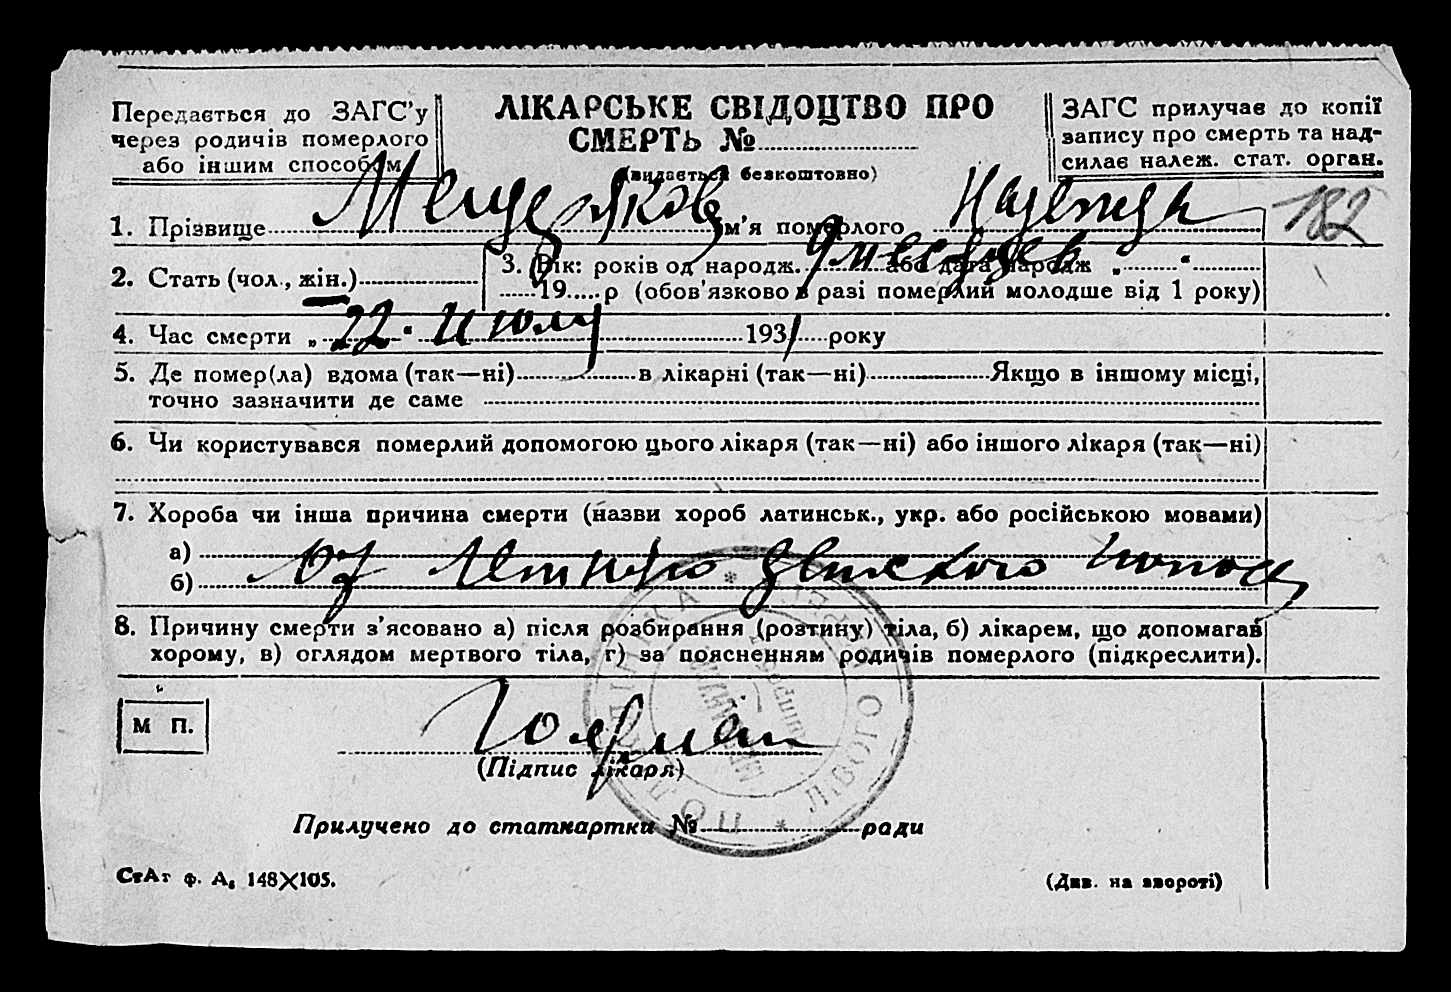 Передається до ЗАГС'у
через родичів померлого
або іншим способом
ЛІКАРСЬКЕ СВІДОЦТВО ПРО
СМЕРТЬ №
(видається безкоштовно)
ЗАГС прилучає до копії
запису про смерть та над-
силає належ. стат. орган.
182
1. Прізвище Мещеряков ім'я померлого Надежда
2. Стать (чол., жін.)
3. Вік: років од народж. 9 месяцев або дата народж „ “
19 р (обов'язково в разі померлий молодше від 1 року)
4. Час смерти „22“ Июля 1931 року
5. Де помер(ла) вдома (так—ні) в лікарні (так—ні) Якщо в іншому місці,
точно зазначити де саме
6. Чи користувався померлий допомогою цього лікаря (так—ні) або іншого лікаря (так—ні)
7. Хороба чи інша причина смерти (назви хороб латинськ., укр. або російською мовами)
а)
б) От летнего детского поноса
8. Причину смерти з'ясовано а) після розбирання (розтину) тіла, б) лікарем, що допомагав
хорому, в) оглядом мертвого тіла, г) за поясненням родичів померлого (підкреслити).
М П.
(Підпис лікаря)
Прилучено до статкартки № ради
СтАт ф. А, 148×105.
(Див. на звороті)